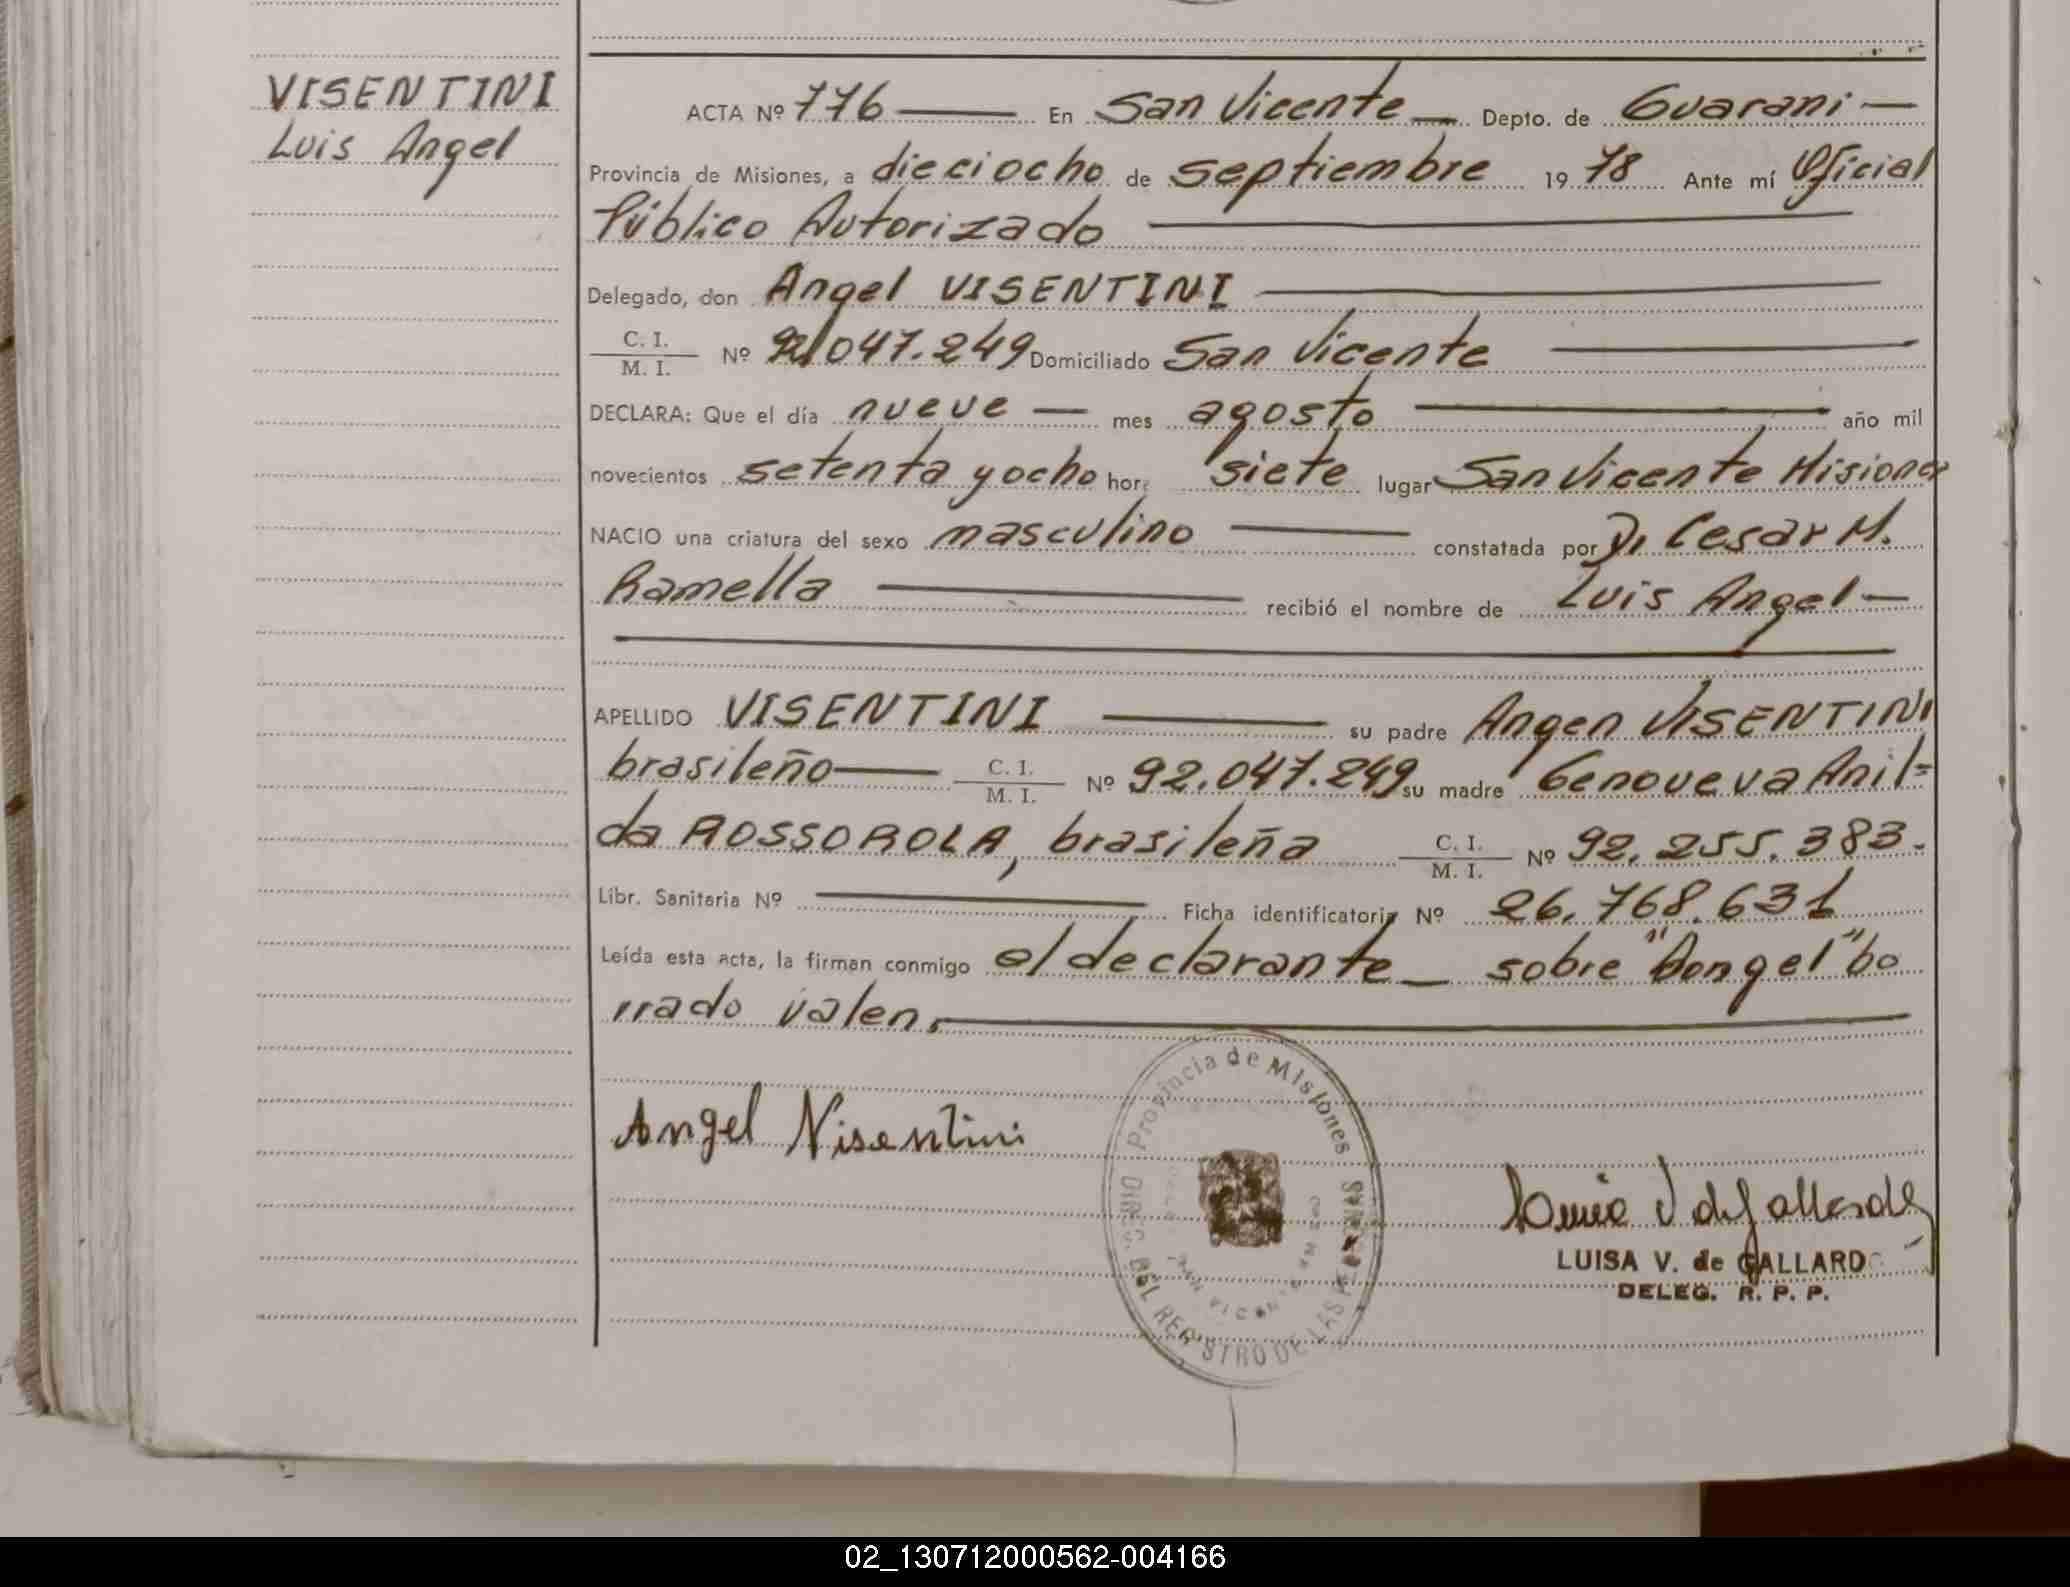 VISENTINI
Luis Angel
ACTA Nº 776 En San Vicente Depto. de Guarani
Provincia de Misiones, a dieciocho de septiembre 19 78 Ante mí Oficial
Público Autorizado
Delegado, don Angel VISENTINI
C. I.
M. I. Nº 92.047.249 Domiciliado San Vicente
DECLARA: Que el día nueve mes agosto año mil
novecientos setenta y ocho hora siete lugar San Vicente Misiones
NACIO una criatura del sexo masculino constatada por Dr Cesar M.
Ramella recibió el nombre de Luis Angel
APELLIDO VISENTINI su padre Angen VISENTINI
brasileño C. I. M. I. Nº 92.047.249 su madre Genoveva Anil=
da ROSSOROLA, brasileña C. I. M. I. Nº 92.255.383.
Libr. Sanitaria Nº Ficha identificatoria Nº 26.768.631
Leída esta acta, la firman conmigo el declarante sobre bo
rrado valen.
Angel Visentini
Provincia de Misiones
DIREC. DEL REGISTRO DE LAS PERSONAS
LUISA V. de GALLARDO
DELEG. R. P. P.
02_130712000562-004166